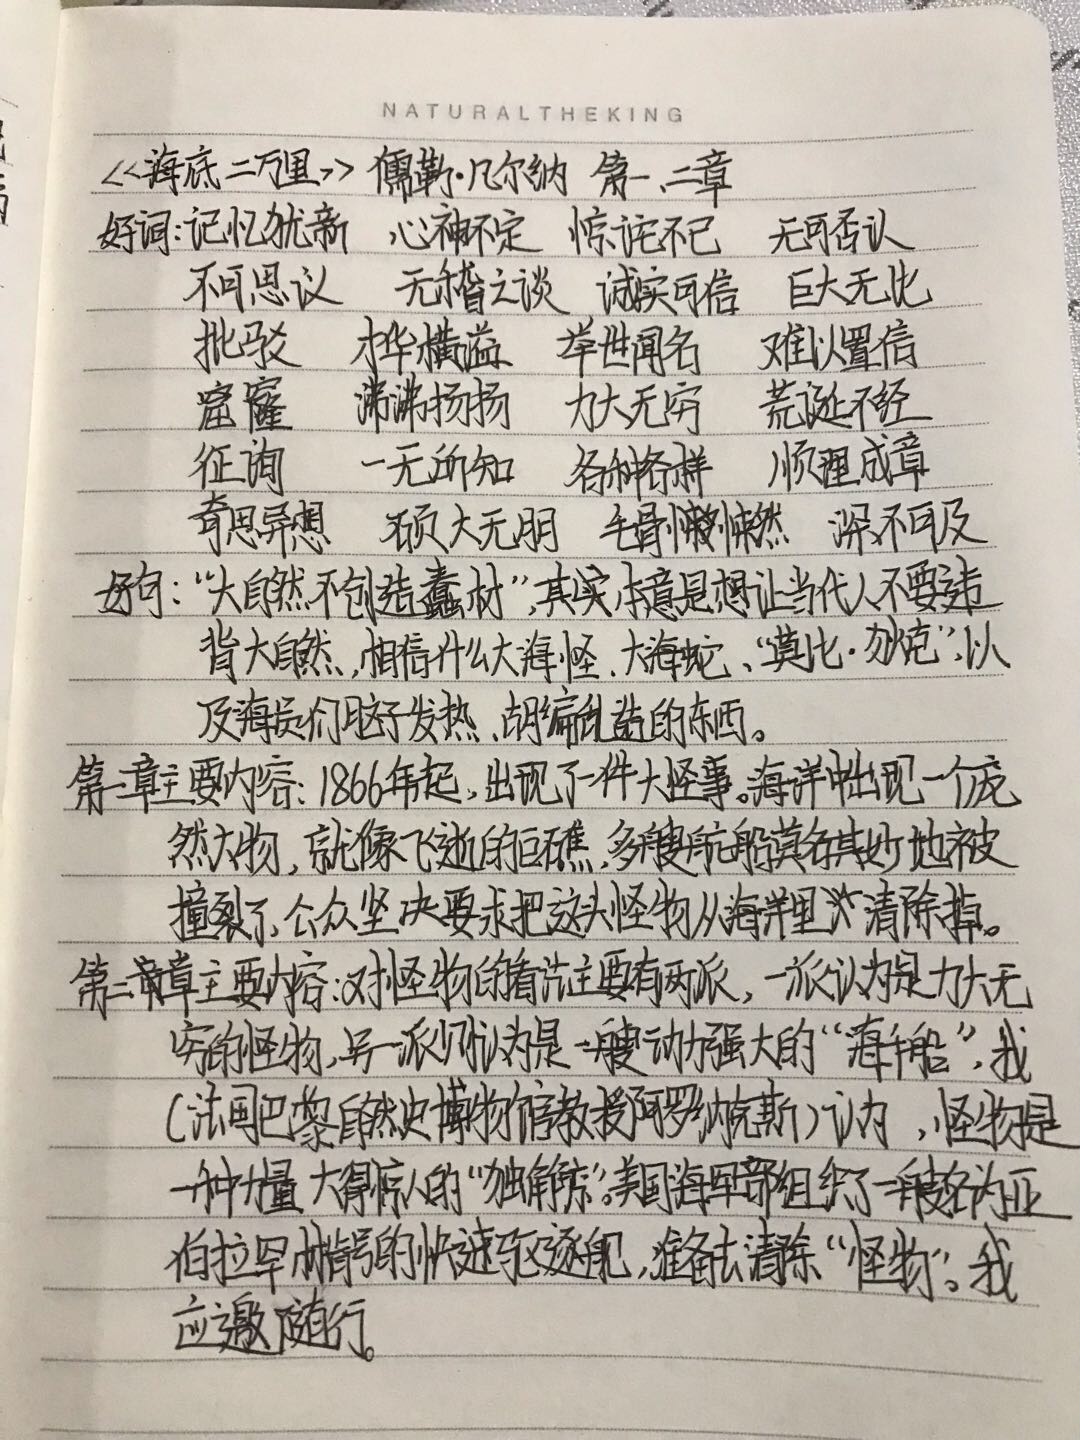 NATURALTHEKING
<<海底二万里>> 儒勒·凡尔纳 第一、二章
好词:记忆犹新 心神不定 惊诧不已 无可否认
不可思议 无稽之谈 诚实可信 巨大无比
批驳 才华横溢 举世闻名 难以置信
窟窿 沸沸扬扬 力大无穷 荒诞不经
征询 一无所知 各种各样 顺理成章
奇思异想 硕大无朋 毛骨悚然 深不可及
好句:“大自然不创造蠢材”,其实本意是想让当代人不要违
背大自然,相信什么大海怪、大海蛇、“莫比·狄克”,以
及海员们脑子发热、胡编乱造的东西。
第一章主要内容:1866年起,出现了一件大怪事。海洋中出现一个庞
然大物,就像飞逝的巨礁,多艘航船莫名其妙地被
撞裂了,公众坚决要求把这头怪物从海洋里清除掉。
第二章主要内容:对怪物的看法主要有两派,一派认为是力大无
穷的怪物,另一派则认为是一艘动力强大的“海千船”,我
(法国巴黎自然史博物馆教授阿罗纳克斯)认为,怪物是
一种力量大得惊人的“独角鲸”。美国海军部组织了一艘名为亚
伯拉罕·林肯号的快速驱逐舰,准备去清除“怪物”。我
应邀随行。